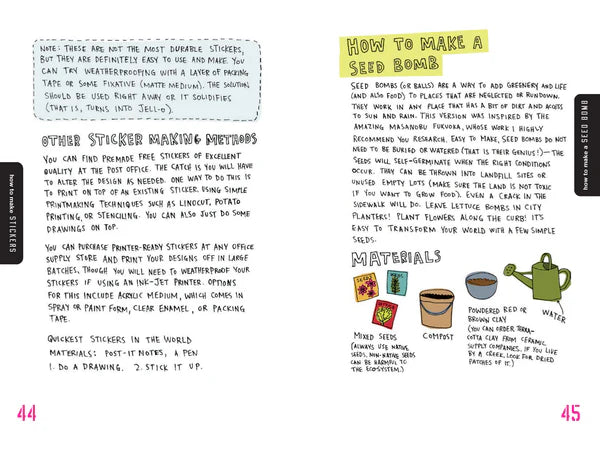 NOTE: THESE ARE NOT THE MOST DURABLE STICKERS,
BUT THEY ARE DEFINITELY EASY TO USE AND MAKE. YOU
CAN TRY WEATHERPROOFING WITH A LAYER OF PACKING
TAPE OR SOME FIXATIVE (MATTE MEDIUM). THE SOLUTION
SHOULD BE USED RIGHT AWAY OR IT SOLIDIFIES
(THAT IS, TURNS INTO JELL-O).
OTHER STICKER MAKING METHODS
YOU CAN FIND PREMADE FREE STICKERS OF EXCELLENT
QUALITY AT THE POST OFFICE. THE CATCH IS YOU WILL HAVE
TO ALTER THE DESIGN AS NEEDED. ONE WAY TO DO THIS IS
TO PRINT ON TOP OF AN EXISTING STICKER USING SIMPLE
PRINTMAKING TECHNIQUES SUCH AS LINOCUT, POTATO
PRINTING, OR STENCILING. YOU CAN ALSO JUST DO SOME
DRAWINGS ON TOP.
YOU CAN PURCHASE PRINTER-READY STICKERS AT ANY OFFICE
SUPPLY STORE AND PRINT YOUR DESIGNS OFF IN LARGE
BATCHES, THOUGH YOU WILL NEED TO WEATHERPROOF YOUR
STICKERS IF USING AN INK-JET PRINTER. OPTIONS
FOR THIS INCLUDE ACRYLIC MEDIUM, WHICH COMES IN
SPRAY OR PAINT FORM, CLEAR ENAMEL, OR PACKING
TAPE.
QUICKEST STICKERS IN THE WORLD
MATERIALS: POST-IT NOTES, A PEN
1. DO A DRAWING. 2. STICK IT UP.
how to make STICKERS
44
HOW TO MAKE A
SEED BOMB
SEED BOMBS (OR BALLS) ARE A WAY TO ADD GREENERY AND LIFE
(AND ALSO FOOD) TO PLACES THAT ARE NEGLECTED OR RUNDOWN.
THEY WORK IN ANY PLACE THAT HAS A BIT OF DIRT AND ACCESS
TO SUN AND RAIN. THIS VERSION WAS INSPIRED BY THE
AMAZING MASANOBU FUKUOKA, WHOSE WORK I HIGHLY
RECOMMEND YOU RESEARCH. EASY TO MAKE, SEED BOMBS DO NOT
NEED TO BE BURIED OR WATERED (THAT IS THEIR GENIUS!)—THE
SEEDS WILL SELF-GERMINATE WHEN THE RIGHT CONDITIONS
OCCUR. THEY CAN BE THROWN INTO LANDFILL SITES OR
UNUSED EMPTY LOTS (MAKE SURE THE LAND IS NOT TOXIC
IF YOU WANT TO GROW FOOD). EVEN A CRACK IN THE
SIDEWALK WILL DO. LEAVE LETTUCE BOMBS IN CITY
PLANTERS! PLANT FLOWERS ALONG THE CURB! IT'S
EASY TO TRANSFORM YOUR WORLD WITH A FEW SIMPLE
SEEDS.
MATERIALS
SEEDS
MIXED SEEDS
(ALWAYS USE NATIVE
SEEDS. NON-NATIVE SEEDS
CAN BE HARMFUL TO
THE ECOSYSTEM.)
COMPOST
POWDERED RED OR
BROWN CLAY
(YOU CAN ORDER TERRA-
COTTA CLAY FROM CERAMIC
SUPPLY COMPANIES. IF YOU LIVE
BY A CREEK, LOOK FOR DRIED
PATCHES OF IT.)
WATER
how to make a SEED BOMB
45